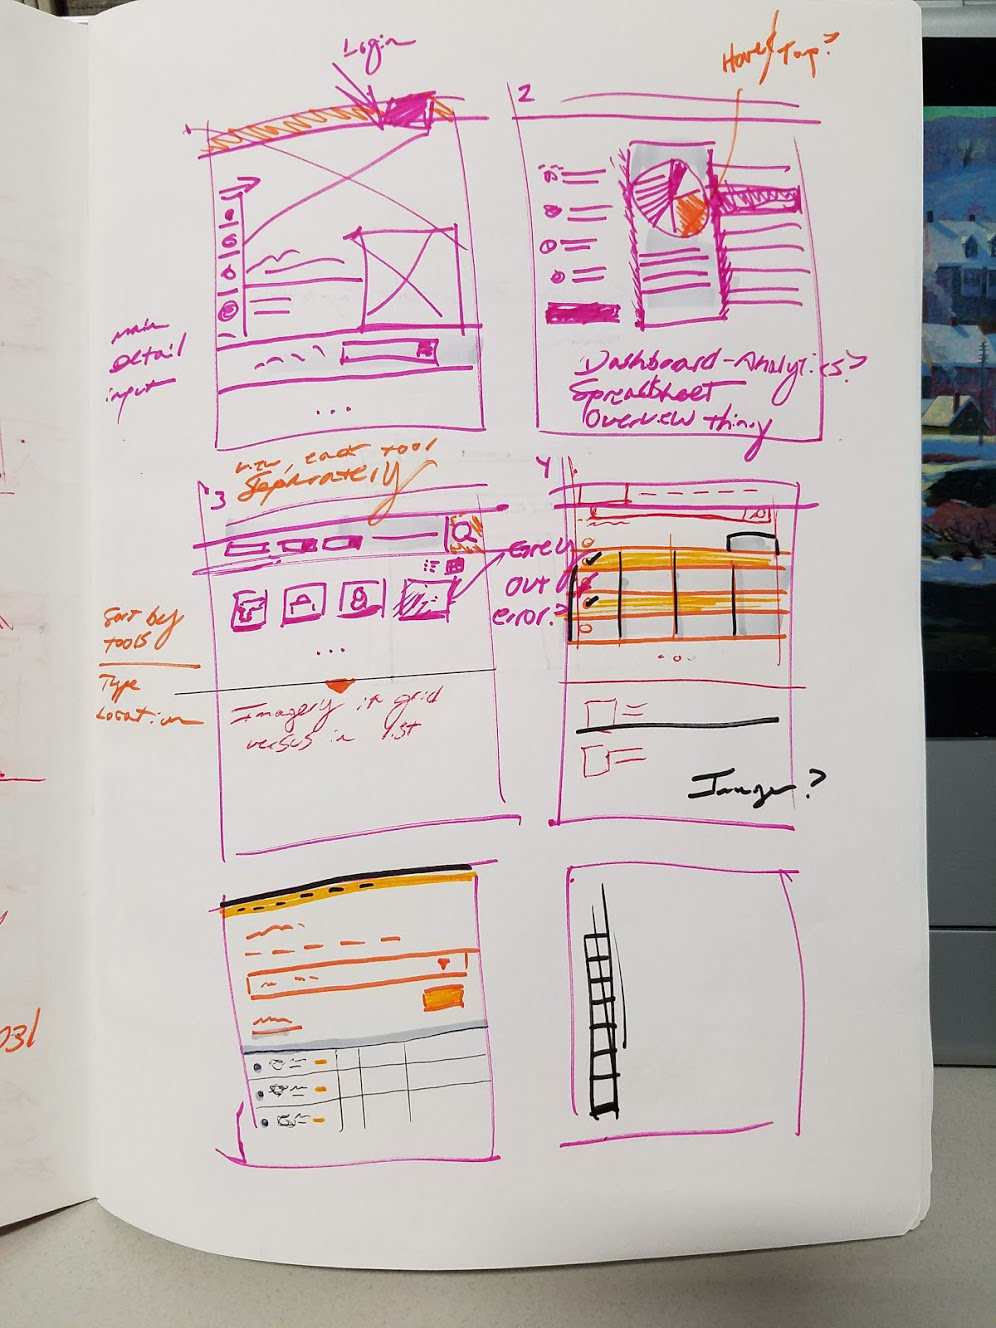 Login
Hover/Tap?
2
main
Detail
input
...
Dashboard-Analytics?
Spreadsheet
Overview thiny
view, each tool
Separately
3
4
Grey
out
error?
...
Sort by
tools
Type
Location
Imagery in grid
versus in list
...
Image?
031